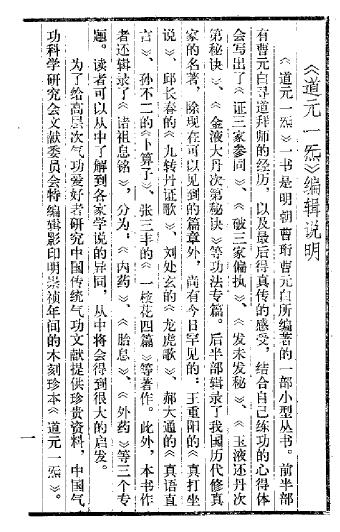 《道元一炁》编辑说明
《道元一炁》一书是明朝曹珩曹元白所编著的一部小型丛书。前半部
有曹元白寻道拜师的经历，以及最后得真传的感受，结合自己练功的心得体
会写出了《证三家参同》、《破三家偏执》、《发未发秘》、《玉液还丹次
第秘诀》、《金液大丹次第秘诀》等功法专篇。后半部辑录了我国历代修真
家的名著，除现在可以见到的篇章外，尚有今日罕见的：王重阳的《真打坐
说》、邱长春的《九转丹证歌》、刘处玄的《龙虎歌》、郝大通的《真语直
言》、孙不二的《卜算子》、张三丰的《一枝花四篇》等著作。此外，本书作
者还辑录了《诸祖息铭》，分为：《内药》、《胎息》、《外药》等三个专
题。读者可以从中了解到各家学说的异同，从中将会得到很大的启发。
为了给高层次气功爱好者研究中国传统气功文献提供珍贵资料，中国气
功科学研究会文献委员会特编辑影印明崇祯年间的木刻珍本《道元一炁》。
一